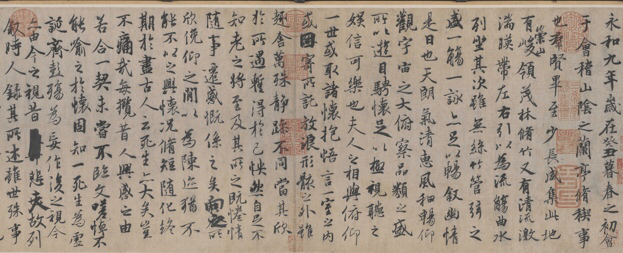 永和九年歲在癸丑暮春之初會
于會稽山陰之蘭亭脩稧事
也群賢畢至少長咸集此地
有崇山峻領茂林脩竹又有清流激
湍暎帶左右引以為流觴曲水
列坐其次雖無絲竹管弦之
盛一觴一詠亦足以暢敘幽情
是日也天朗氣清惠風和暢仰
觀宇宙之大俯察品類之盛
所以遊目騁懷足以極視聽之
娛信可樂也夫人之相與俯仰
一世或取諸懷抱悟言一室之內
或因寄所託放浪形骸之外雖
趣舍萬殊靜躁不同當其欣
於所遇蹔得於己怏然自足不
知老之將至及其所之既惓情
隨事遷感慨係之矣向之所
欣俛仰之閒以為陳迹猶不
能不以之興懷況脩短隨化終
期於盡古人云死生亦大矣豈
不痛哉每攬昔人興感之由
若合一契未嘗不臨文嗟悼不
能喻之於懷固知一死生為虛
誕齊彭殤為妄作後之視今
亦由今之視昔悲夫故列
敘時人錄其所述雖世殊事